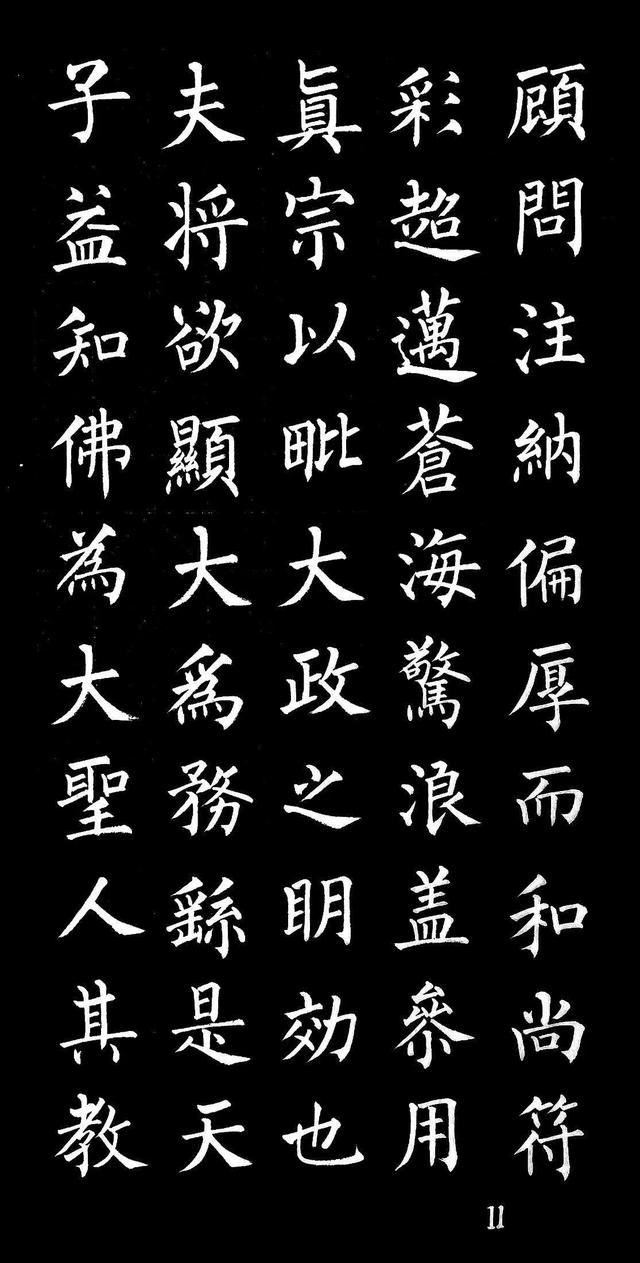 顧問注納偏厚而和尚符
彩超邁蒼海驚浪盖參用
眞宗以毗大政之明効也
夫将欲顯大爲務繇是天
子益知佛為大聖人其教
11